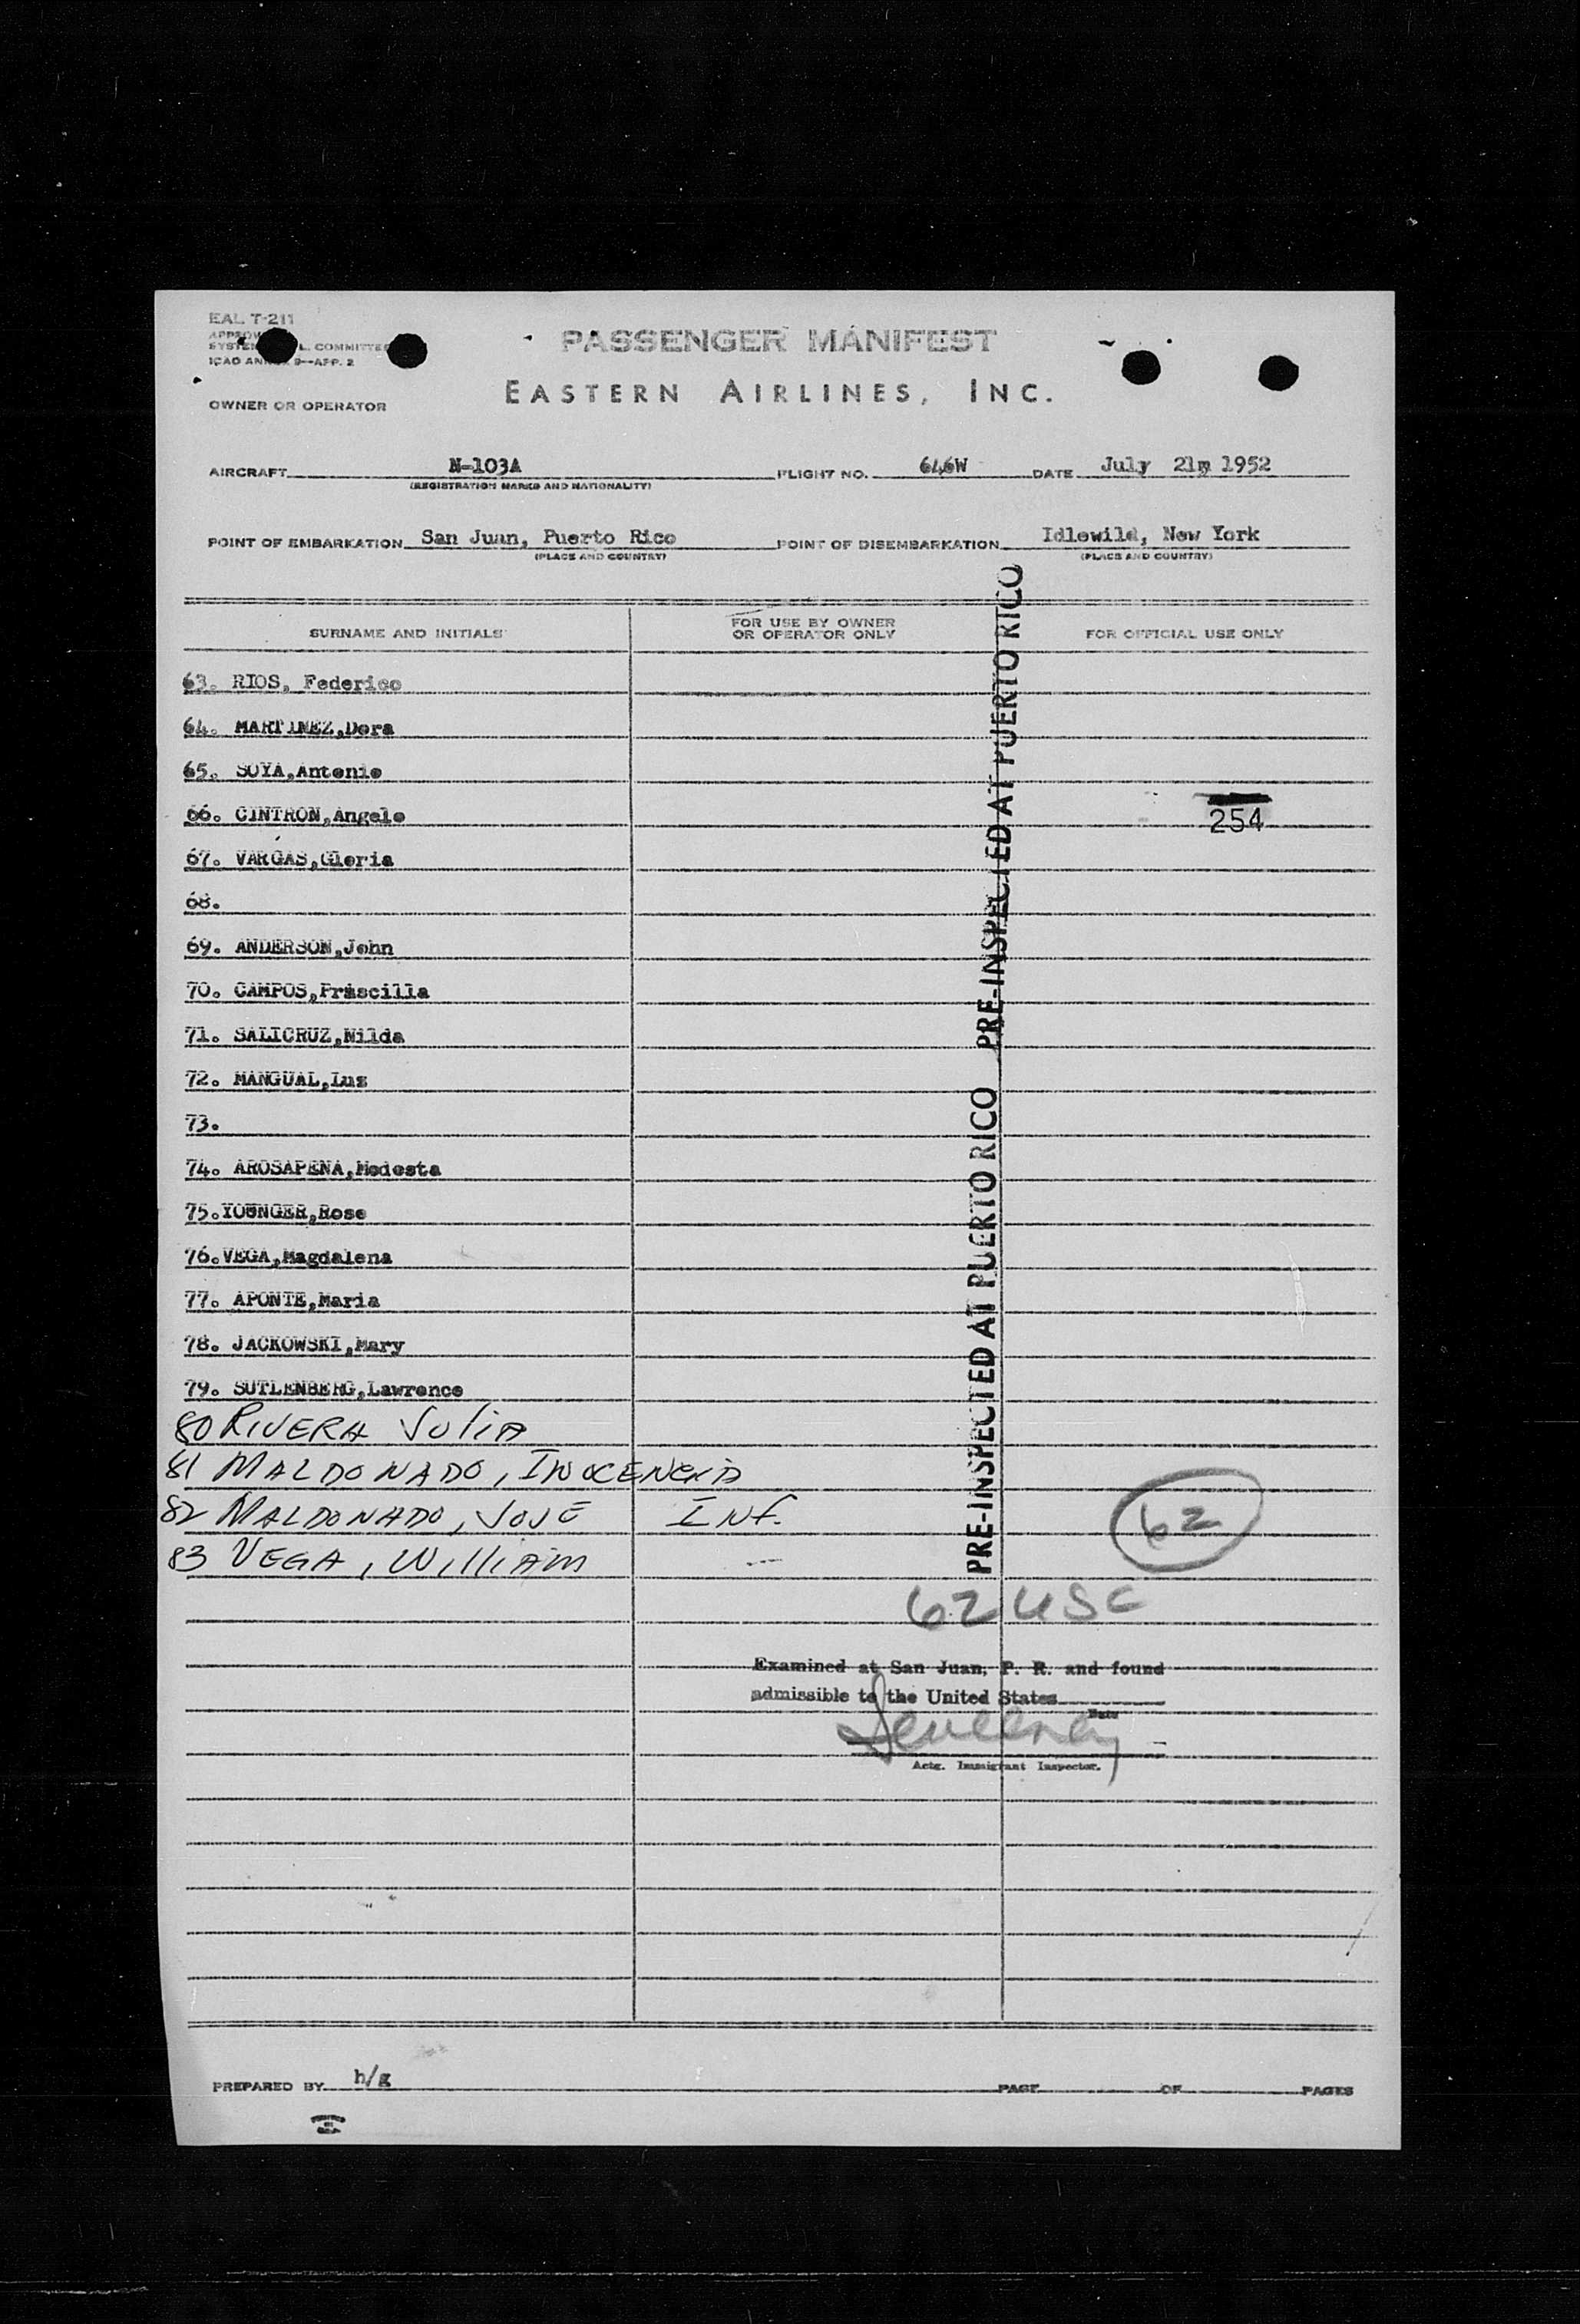 EAL T-211
PASSENGER MANIFEST
L. COMMITTEE
ICAO ANNEX 9-APP. 2
EASTERN AIRLINES, INC.
OWNER OR OPERATOR
AIRCRAFT N-103A FLIGHT NO. 646W DATE July 21m 1952
(REGISTRATION MARKS AND NATIONALITY)
POINT OF EMBARKATION San Juan, Puerto Rico POINT OF DISEMBARKATION Idlewild, New York
(PLACE AND COUNTRY) (PLACE AND COUNTRY)
SURNAME AND INITIALS
FOR USE BY OWNER
OR OPERATOR ONLY
FOR OFFICIAL USE ONLY
63. RIOS, Federico
64. MARTINEZ,Dora
65. SOYA,Antonio
66. CINTRON,Angelo
254
67. VARGAS,Gloria
68.
69. ANDERSON,John
70. CAMPOS,Priscilla
71. SALICRUZ,Nilda
72. MANGUAL,Luz
73.
74. AROSAPENA,Modesta
75.YOUNGER,Rose
76.VEGA,Magdalena
77. APONTE,Maria
78. JACKOWSKI,Mary
79. SUTLENBERG,Lawrence
80 RIVERA Julia
81 MALDONADO, INOCENCIA
82 MALDONADO, JOSE INF.
83 VEGA, William
PRE-INSPECTED AT PUERTO RICO PRE-INSPECTED AT PUERTO RICO
62
62 USC
Examined at San Juan, P. R. and found
admissible to the United States
Date
Actg. Immigrant Inspector.
PREPARED BY h/g PAGE OF PAGES